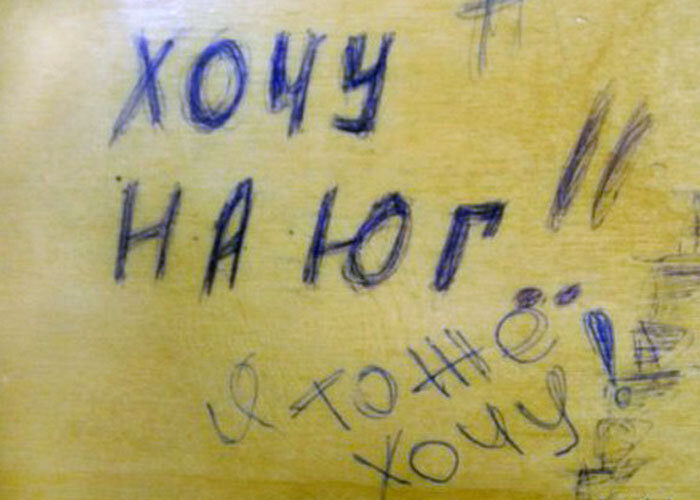 ХОЧУ
НА ЮГ !!
Я ТОЖЁ !
ХОЧУ